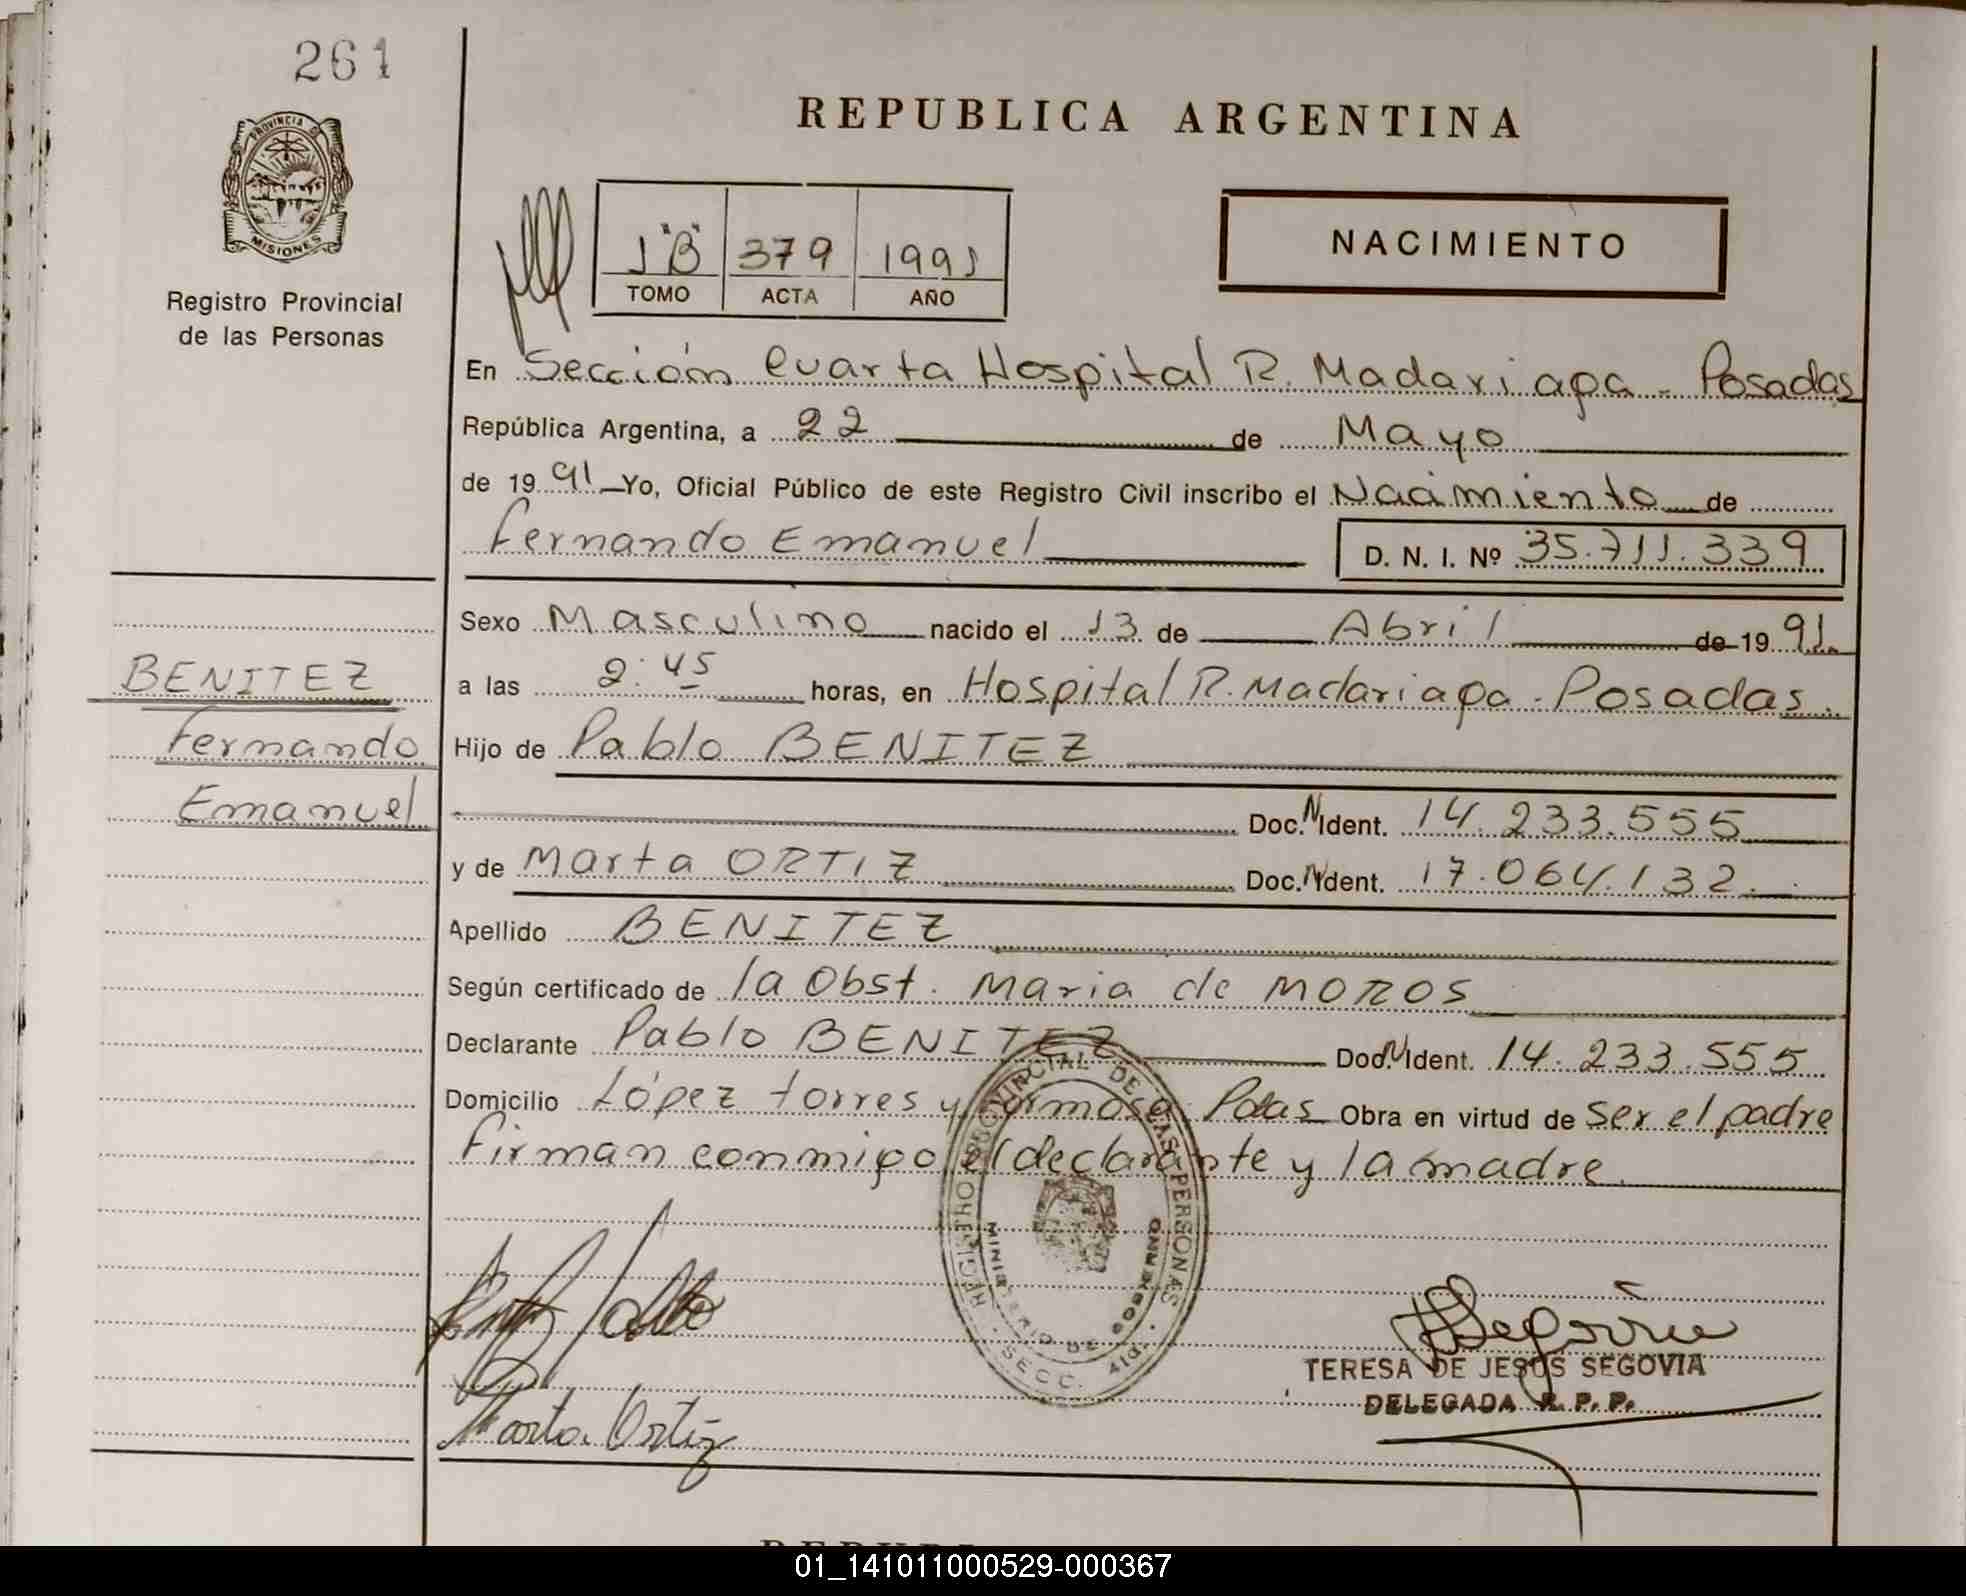 261
REPUBLICA ARGENTINA
PROVINCIA D
MISIONES
Registro Provincial
de las Personas
1 "B" 379 1991
TOMO ACTA AÑO
NACIMIENTO
En Sección Cuarta Hospital R. Madariaga - Posadas
República Argentina, a 22 de Mayo
de 1991 Yo, Oficial Público de este Registro Civil inscribo el Nacimiento de
Fernando Emanuel D. N. I. Nº 35.711.339
Sexo Masculino nacido el 13 de Abril de 1991
BENITEZ
Fernando
Emanuel
a las 2:45 horas, en Hospital R. Madariaga - Posadas.
Hijo de Pablo BENITEZ
Doc. N Ident. 14.233.555
y de Marta ORTIZ Doc. N Ident. 17.064.132.
Apellido BENITEZ
Según certificado de la Obst. Maria de MOROS
Declarante Pablo BENITEZ Doc. N Ident. 14.233.555
Domicilio López torres y Formosa Pdas Obra en virtud de Ser el padre
Firman conmigo el declarante y la madre.
REGISTRO PROVINCIAL DE LAS PERSONAS
MINISTERIO DE GOBIERNO
SECC. 4ta.
Marta Ortiz
TERESA DE JESUS SEGOVIA
DELEGADA R. P. P.
01_141011000529-000367